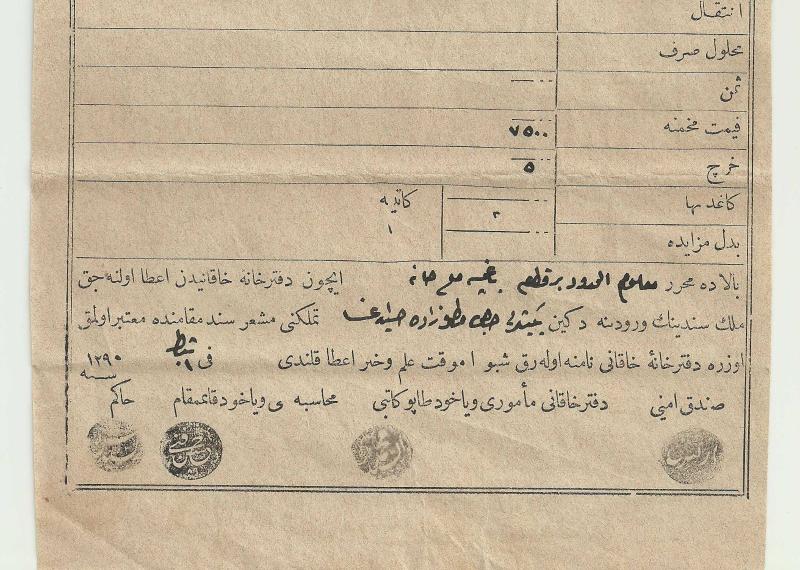 انتقال
محلول صرف
ثمن
قیمت مخمنه ٧٥٠٠
خرج ٥
كاغد بها ٢ كاتبیه ١
بدل مزایده
بالاده محرر معلوم الحدود بر قطعه باغچه مع خانه ایچون دفترخانه خاقانیدن اعطا اولنه جق
ملك سندینك ورودینه دكین زاده تملكنی مشعر سند مقامنده معتبر اولمق
اوزره دفترخانهٔ خاقانی نامنه اوله رق اشبو موقت علم وخبر اعطا قلندی فی ١ سنه ١٢٩٠
صندق امینی دفتر خاقانی مأموری ویاخود طاپو كاتبی محاسبه ی ویاخود قایمقام حاكم